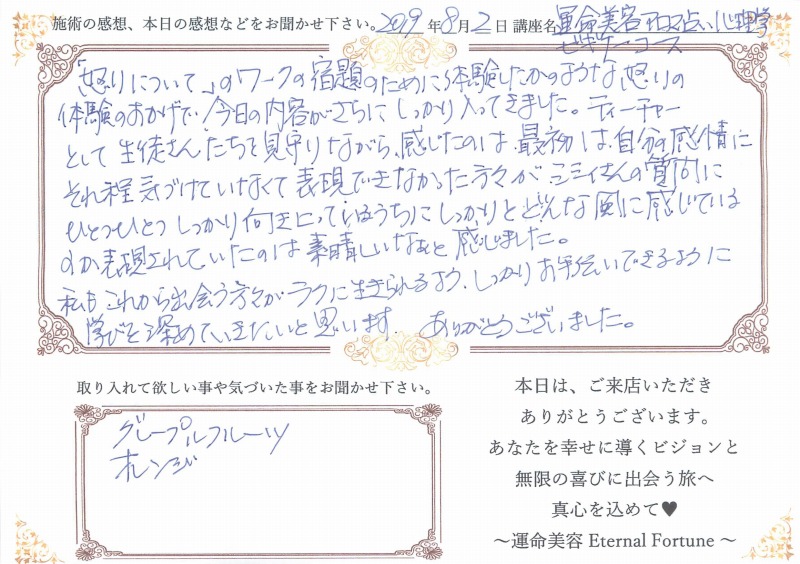 施術の感想、本日の感想などをお聞かせ下さい。2019年8月2日 講座名 運命美容アロマ占い心理学
ビギナーコース
「怒りについて」のワークの宿題のために体験したかのような怒りの
体験のおかげで、今日の内容がさらにしっかり入ってきました。ティーチャー
として生徒さんたちを見守りながら、感じたのは、最初は、自分の感情に
それ程気づけていなくて表現できなかった方々が、ミミイさんの質問に
ひとつひとつしっかり向き合っているうちにしっかりとどんな風に感じている
のか表現されていたのは素晴しいなぁと感じました。
私もこれから出会う方々がラクに生きられるよう、しっかりお手伝いできるように
学びを深めていきたいと思います。ありがとうございました。
取り入れて欲しい事や気づいた事をお聞かせ下さい。
グレープルフルーツ
オレンジ
本日は、ご来店いただき
ありがとうございます。
あなたを幸せに導くビジョンと
無限の喜びに出会う旅へ
真心を込めて♥
～運命美容 Eternal Fortune ～